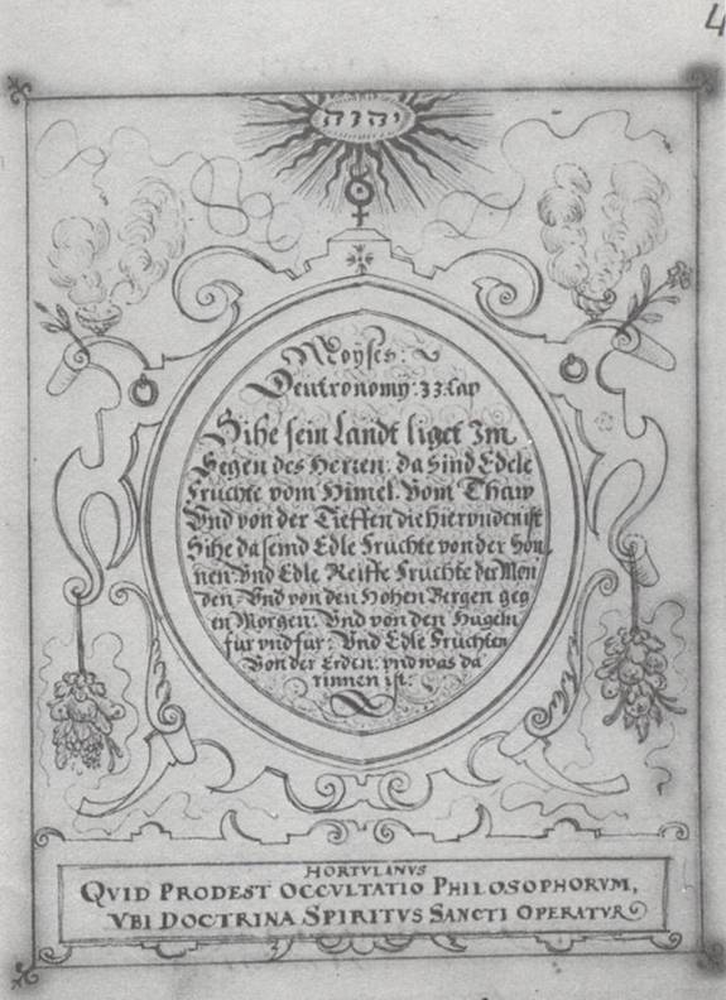 4
יהוה
Moÿses:
Deutronomy: 33. Cap
Sihe sein Landt liget Im
Segen des Herren: da Sind Edele
Fruchte vom Himel. Vom Thaw
Vnd von der Tieffen die Hiervnden ist
Sihe da seind Edle Fruchte von der Son
nen: Vnd Edle Reiffe Fruchte der Mon
den. Vnd von den Hohen Bergen geg
en Morgen: Vnd von den Hugeln
fur vnd fur: Vnd Edle Fruchten
Von der Erden: vnd was da
rinnen ist:
HORTVLANVS
QVID PRODEST OCCVLTATIO PHILOSOPHORVM,
VBI DOCTRINA SPIRITVS SANCTI OPERATVR